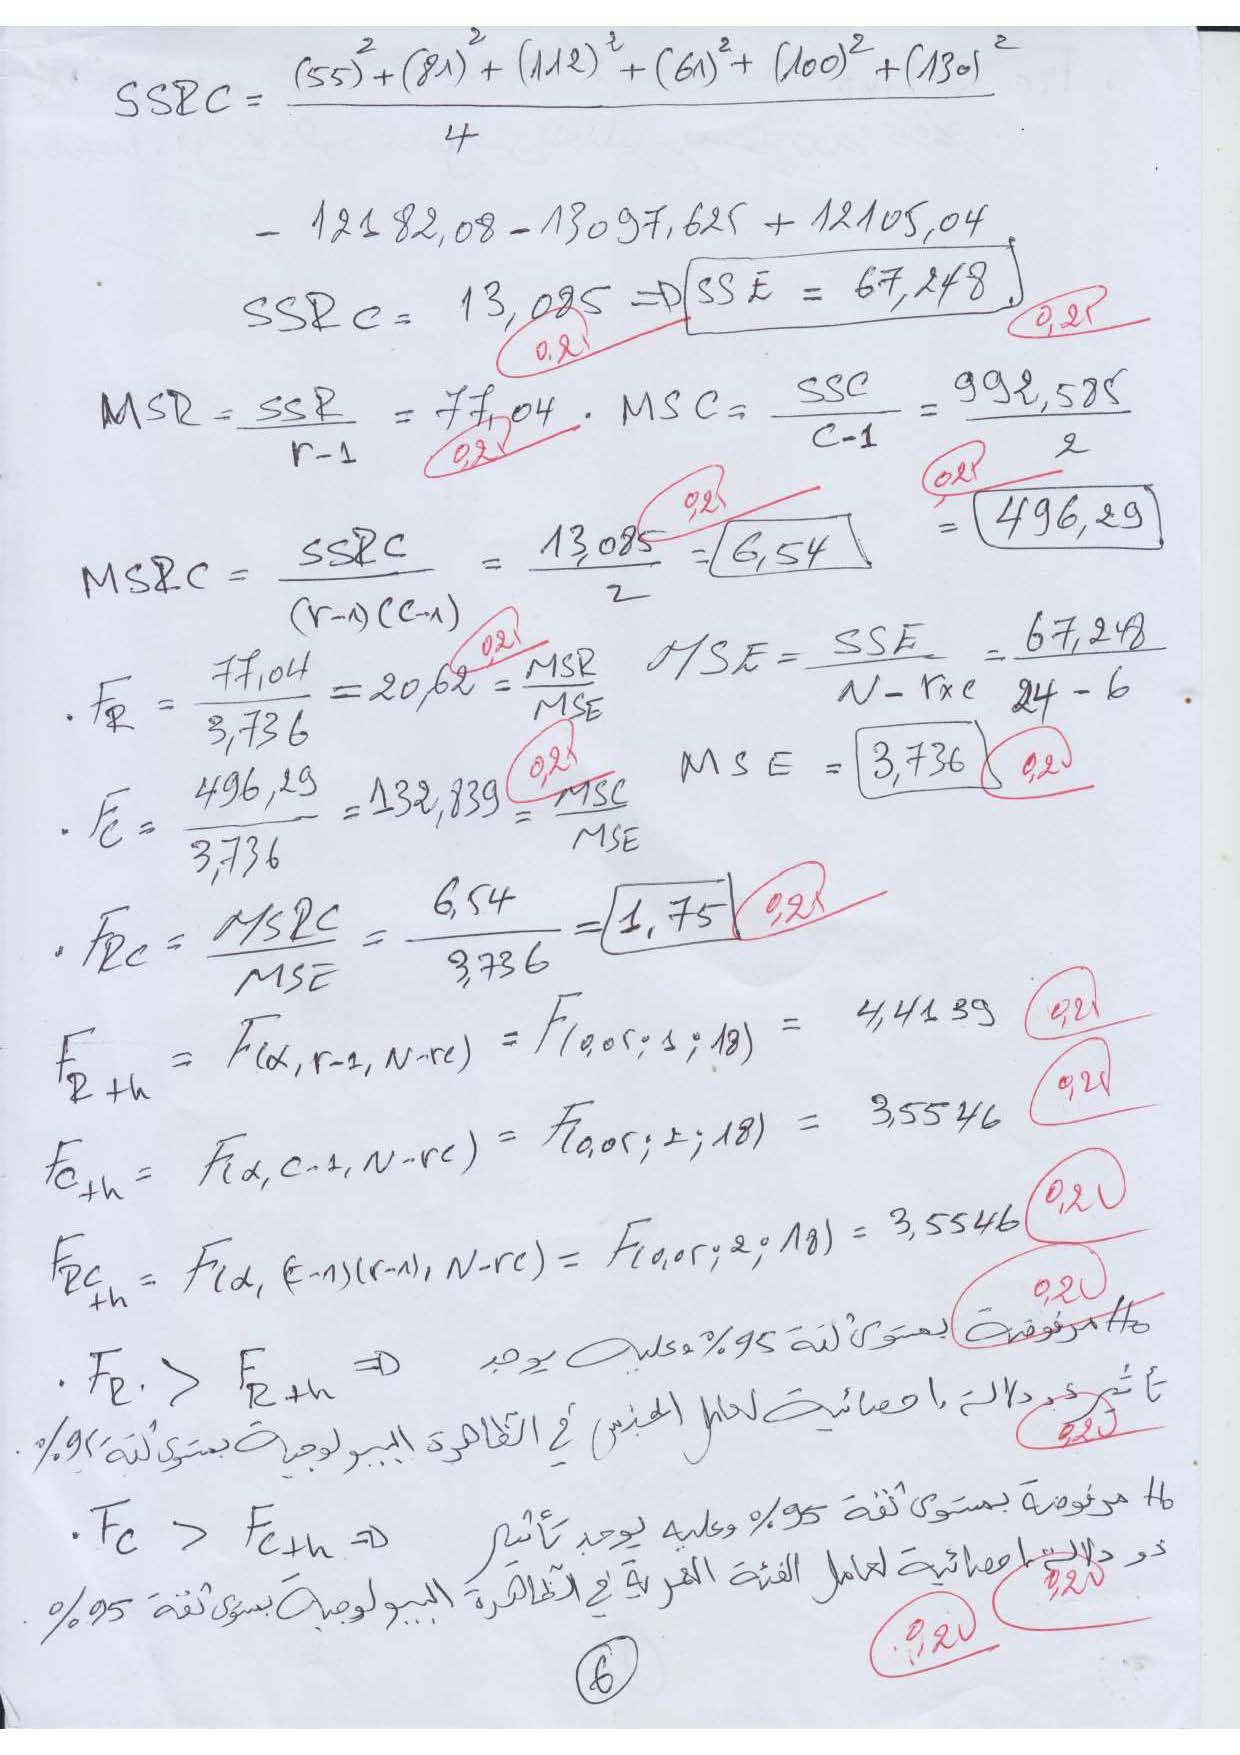 SSRC = ((55)² + (81)² + (112)² + (61)² + (100)² + (130)²) / 4
- 12182,08 - 13097,625 + 12105,04
SSRC = 13,085 => SSE = 67,248
0,25 0,25
MSR = SSR / (r-1) = 77,04 . MSC = SSC / (C-1) = 992,585 / 2
0,25 0,25 0,25
= 496,29
MSRC = SSRC / ((r-1)(C-1)) = 13,085 / 2 = 6,54
0,25
. F_R = 77,04 / 3,736 = 20,62 = MSR / MSE MSE = SSE / (N - r×c) = 67,248 / (24 - 6)
0,25
MSE = 3,736 0,25
. F_C = 496,29 / 3,736 = 132,839 = MSC / MSE
. F_RC = MSRC / MSE = 6,54 / 3,736 = 1,75 0,25
F_R th = F(α, r-1, N-rc) = F(0,05; 1; 18) = 4,4139 0,25
F_C th = F(α, C-1, N-rc) = F(0,05; 2; 18) = 3,5546 0,25
F_RC th = F(α, (C-1)(r-1), N-rc) = F(0,05; 2; 18) = 3,5546 0,25
0,25
. F_R > F_R th => H₀ مرفوضة بمستوى ثقة 95% وعليه يوجد
تأثير ذو دلالة إحصائية لعامل الجنس في الظاهرة البيولوجية بمستوى ثقة 95%.
0,25
. F_C > F_C th => H₀ مرفوضة بمستوى ثقة 95% وعليه يوجد تأثير
ذو دلالة إحصائية لعامل الفئة العمرية في الظاهرة البيولوجية بمستوى ثقة 95%.
0,25
0,25
6